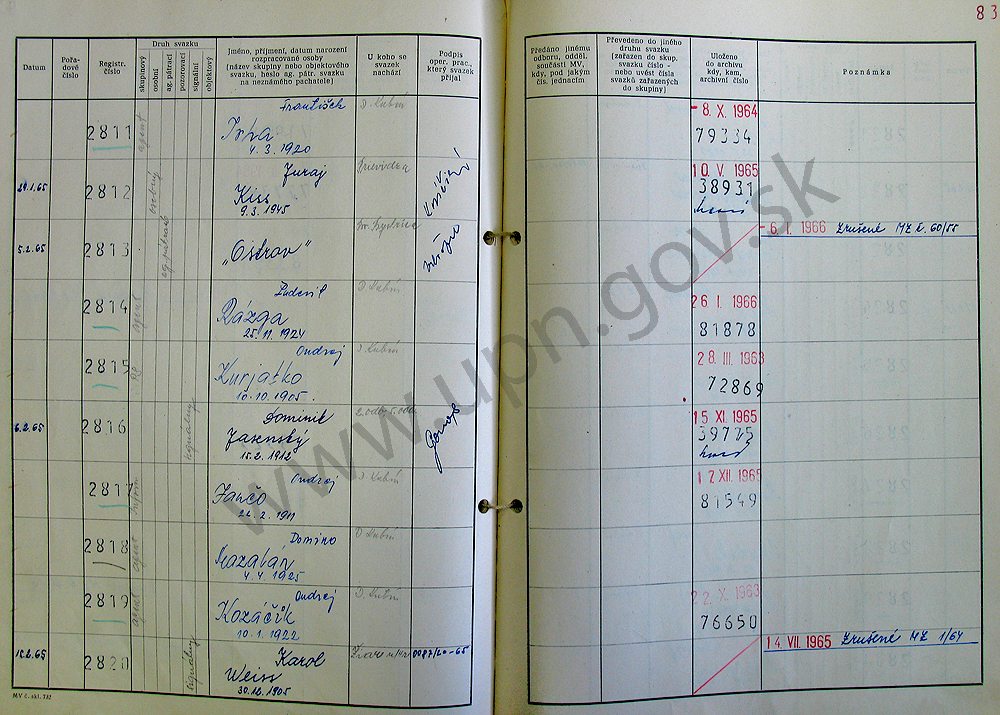 83
Datum
Pořa-
dové
číslo
Registr.
číslo
Druh svazku
skupinový
osobní
ag. pátrací
pozorovací
signální
objektový
Jméno, příjmení, datum narození
rozpracované osoby
(název skupiny nebo objektového
svazku, heslo ag. pátr. svazku
na neznámého pachatele)
U koho se
svazek
nachází
Podpis
oper. prac.,
který svazek
přijal
Předáno jinému
odboru, odděl.
součásti MV,
kdy, pod jakým
čís. jednacím
Převedeno do jiného
druhu svazku
(zařazen do skup.
svazku číslo -
nebo uvést čísla
svazků zařazených
do skupiny)
Uloženo
do archivu
kdy, kam,
archivní číslo
Poznámka
2811 agent František D. Kubín - 8. X. 1964
Trha 79334
4. 3. 1920
29.1.65 2812 osobný Juraj Prievidza 10. V. 1965
Kiss 38931
9. 3. 1945
5.2.65 2813 ag. pátrací „Ostrov" B. Bystrica - 6. I. 1966 Zrušené MZ č. 60/55
2814 agent Ľudevít D. Kubín 26. I. 1966
Rázga 81878
25. 11. 1924
2815 Ondrej D. Kubín 28. III. 1963
Kurjatko 72869
10. 10. 1905
6.2.65 2816 signálny Dominik 2. odb. 5. odd. 15 XI. 1965
Jasenský 39775
15. 2. 1912
2817 inform. Ondrej D. Kubín 17 XII. 1965
Jančo 81549
22. 2. 1911
2818 agent Domino D. Kubín
Mazalán
4. 4. 1925
2819 agent Ondrej D. Kubín 22. X. 1963
Kozáčik 76650
10. 1. 1922
12.2.65 2820 signálny Karol 0087/20-65 14. VII. 1965 Zrušené MZ 1/64
Weiss
30. 12. 1905
MV č. skl. 732
www.upn.gov.sk